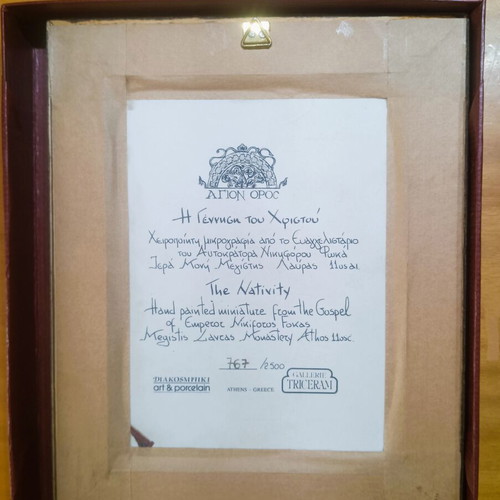 ΑΓΙΟΝ ΟΡΟΣ
Η Γέννηση του Χριστού
Χειροποίητη μικρογραφία από το Ευαγγελιστάριο
του Αυτοκράτορα Νικηφόρου Φωκά
Ιερά Μονή Μεγίστης Λαύρας 11ος αι.
The Nativity
Hand painted miniature from the Gospel
of Emperor Nikiforos Fokas
Megistis Lavras Monastery Athos 11oc.
767 /2500
DIAKOSMITIKI
art & porcelain
ATHENS - GREECE
GALLERIE
TRICERAM